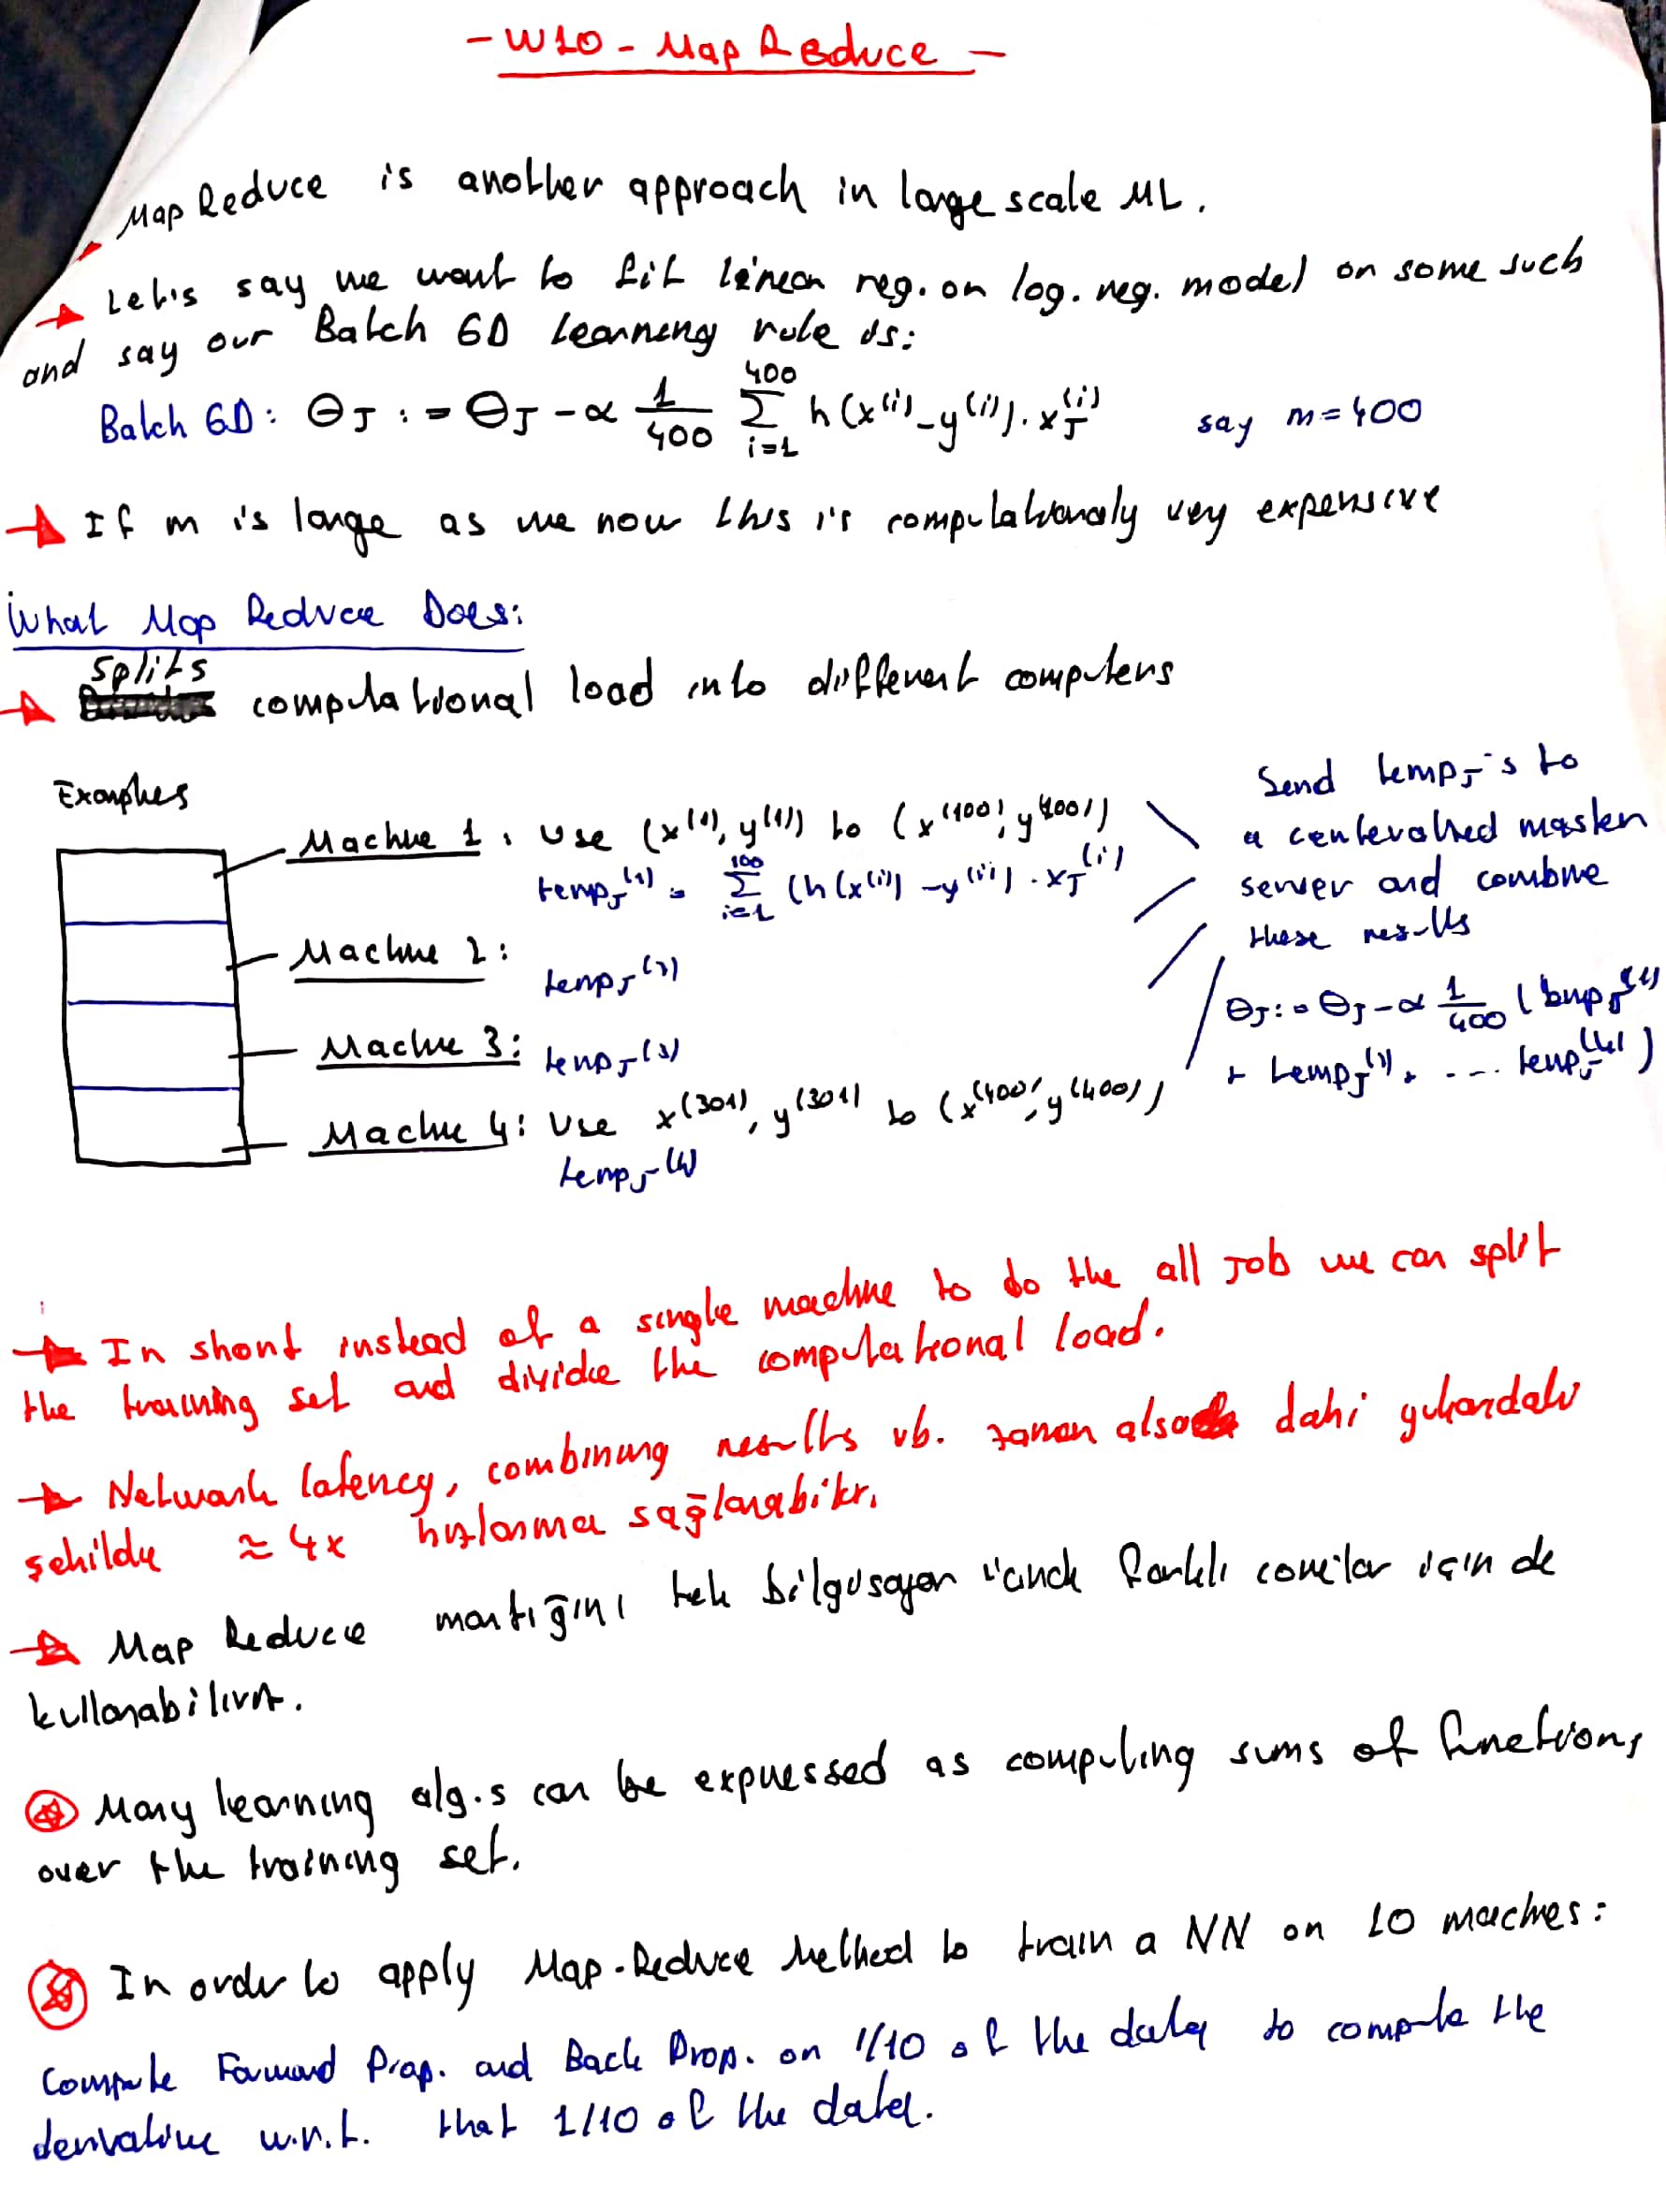 - W10 - Map Reduce -
Map Reduce is another approach in large scale ML.
→ Let's say we want to fit linear reg. or log. reg. model on some such
and say our Batch GD learning rule is:
Batch GD: θ_J := θ_J - α 1/400 Σ_{i=1}^{400} h(x^(i) - y^(i)). x_J^(i) say m = 400
→ If m is large as we now this is computationaly very expensive
What Map Reduce Does:
Splits
→ computational load into different computers
Examples
Machine 1: Use (x^(1), y^(1)) to (x^(100), y^(100))
temp_J^(1) = Σ_{i=1}^{100} (h(x^(i)) - y^(i)) . x_J^(i)
Machine 2:
temp_J^(2)
Machine 3: temp_J^(3)
Machine 4: Use x^(301), y^(301) to (x^(400), y^(400))
temp_J^(4)
Send temp_J's to
a centeralized master
server and combine
these results
θ_J := θ_J - α 1/400 (temp_J^(1)
+ temp_J^(2) + .... temp_J^(4))
→ In short instead of a single machine to do the all job we can split
the training set and divide the computational load.
→ Network latency, combining results vb. zaman alsa dahi yukarıdaki
şekilde ≈ 4x hızlanma sağlanabilir.
→ Map Reduce mantığını tek bilgisayar farklı core'lar için de
kullanabiliriz.
Many learning alg.s can be expressed as computing sums of functions
over the training set.
In order to apply Map-Reduce Method to train a NN on 10 machines:
Compute Forward Prop. and Back Prop. on 1/10 of the data to compute the
derivative w.r.t. that 1/10 of the data.